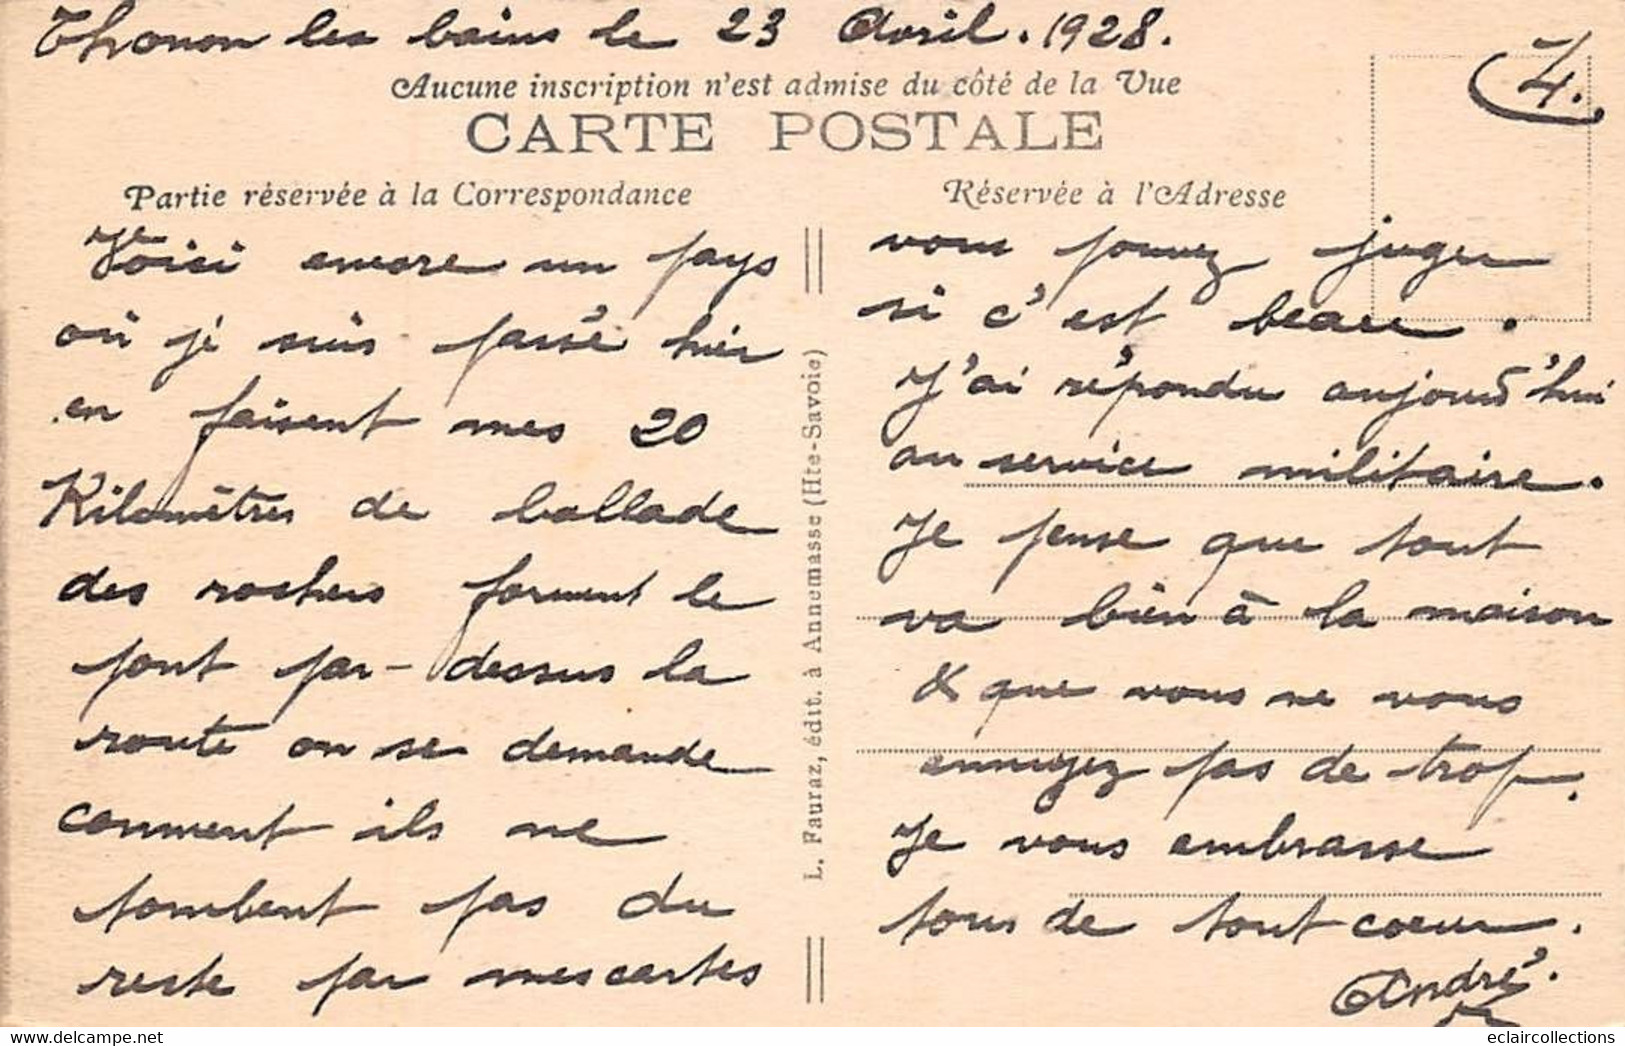 Thonon les bains le 23 Avril. 1928.
4.
Aucune inscription n'est admise du côté de la Vue
CARTE POSTALE
Partie réservée à la Correspondance
Réservée à l'Adresse
Voici encore un pays
où je suis passé hier
en faisent mes 20
Kilomètres de ballade
des rochers forment le
pont par-dessus la
route on se demande
comment ils ne
tombent pas du
reste par mes cartes
L. Fauraz, édit. à Annemasse (Hte-Savoie)
vous pouvez juger
si c'est beau.
J'ai répondu aujourd'hui
au service militaire.
Je pense que tout
va bien à la maison
& que vous ne vous
ennuyez pas de trop.
Je vous embrasse
tous de tout coeur.
André.
eclaircollections